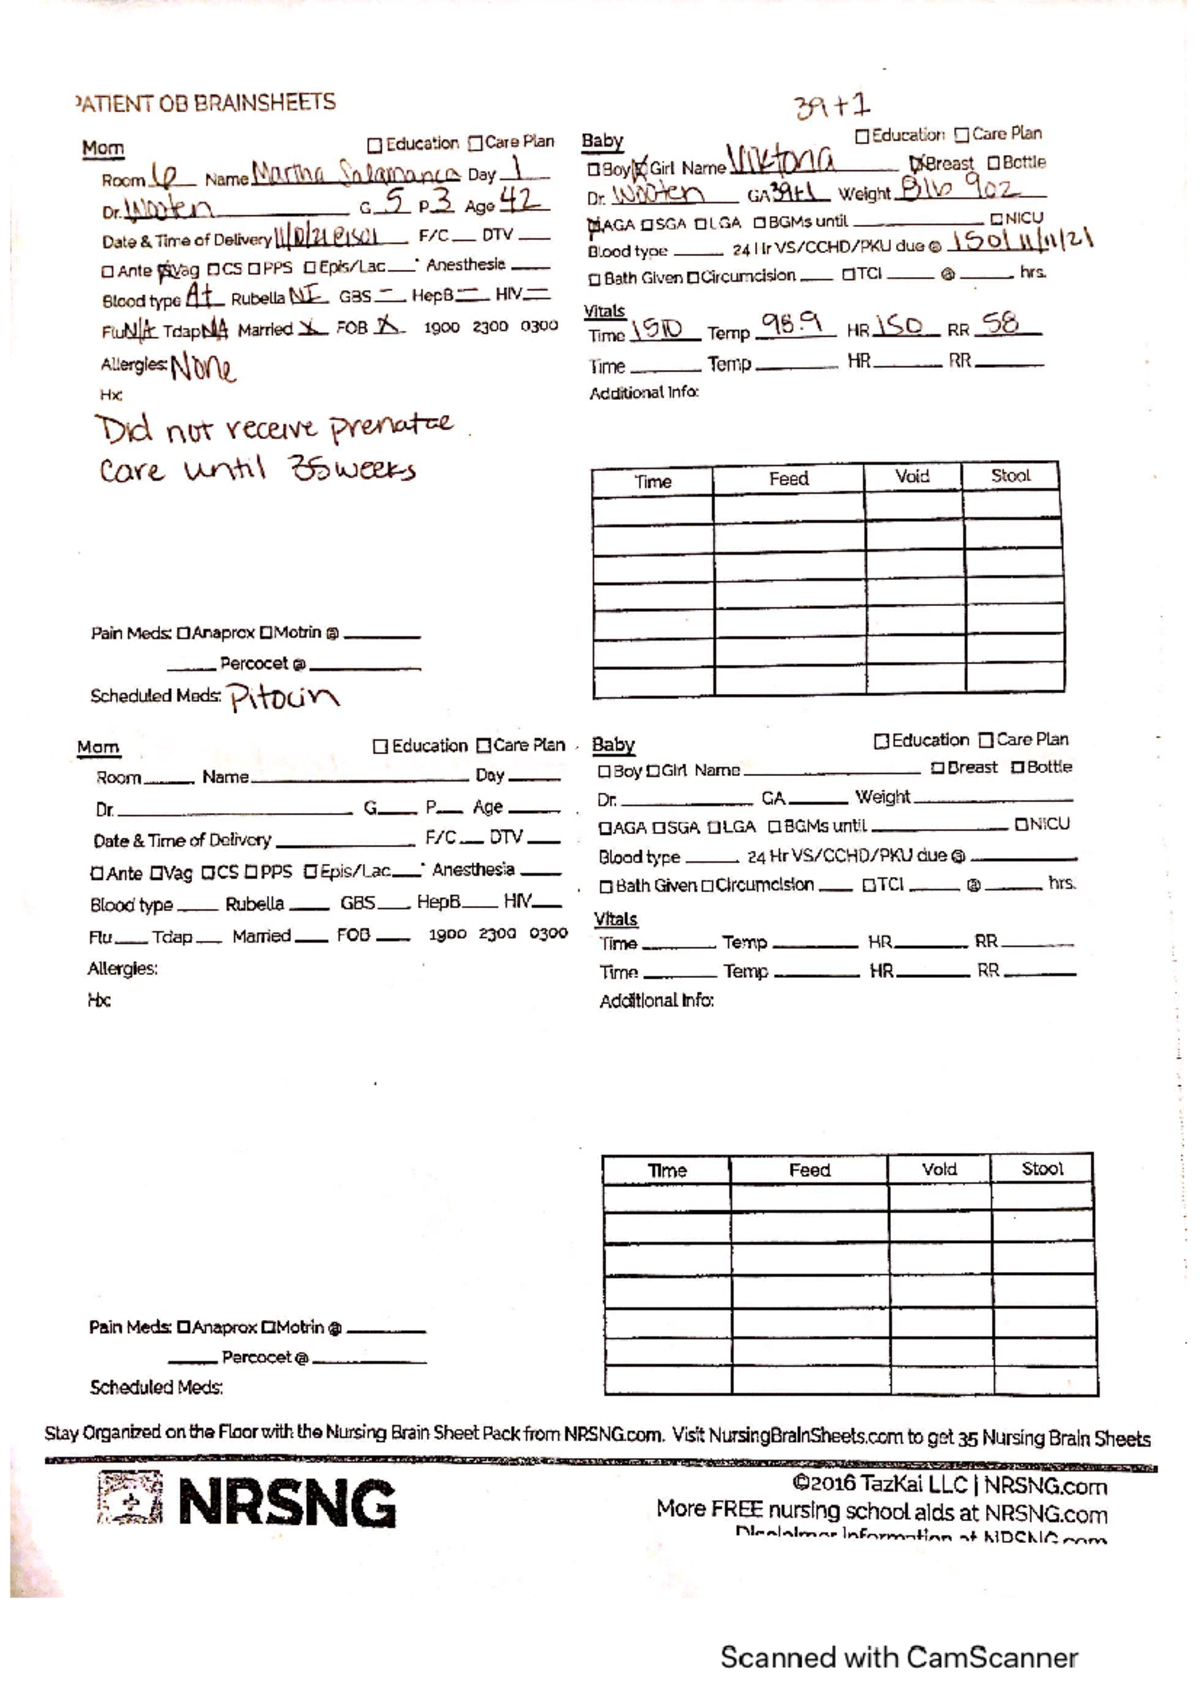 PATIENT OB BRAINSHEETS
39+1
Mom ☐ Education ☐ Care Plan
Room 6 Name Marina Salamanca Day 1
Dr. Wooten G 5 P 3 Age 42
Date & Time of Delivery 11/10/21 @1501 F/C DTV
☐ Ante ☒ Vag ☐ CS ☐ PPS ☐ Epis/Lac Anesthesia
Blood type A+ Rubella NI GBS - HepB - HIV -
Flu N/A Tdap NA Married X FOB X 1900 2300 0300
Allergies: None
Hx:
Did not receive prenatal
care until 35 weeks
Pain Meds: ☐ Anaprox ☐ Motrin @
Percocet @
Scheduled Meds: Pitocin
Baby ☐ Education ☐ Care Plan
☐ Boy ☒ Girl Name Viktoria ☒ Breast ☐ Bottle
Dr. Wooten GA 39+1 Weight 8lb 9oz
☒ AGA ☐ SGA ☐ LGA ☐ BGMs until ☐ NICU
Blood type 24 Hr VS/CCHD/PKU due @ 1501 11/11/21
☐ Bath Given ☐ Circumcision ☐ TCI @ hrs.
Vitals
Time 1510 Temp 98.9 HR 150 RR 58
Time Temp HR RR
Additional Info:
Time Feed Void Stool
Mom ☐ Education ☐ Care Plan
Room Name Day
Dr. G P Age
Date & Time of Delivery F/C DTV
☐ Ante ☐ Vag ☐ CS ☐ PPS ☐ Epis/Lac Anesthesia
Blood type Rubella GBS HepB HIV
Flu Tdap Married FOB 1900 2300 0300
Allergies:
Hx:
Pain Meds: ☐ Anaprox ☐ Motrin @
Percocet @
Scheduled Meds:
Baby ☐ Education ☐ Care Plan
☐ Boy ☐ Girl Name ☐ Breast ☐ Bottle
Dr. GA Weight
☐ AGA ☐ SGA ☐ LGA ☐ BGMs until ☐ NICU
Blood type 24 Hr VS/CCHD/PKU due @
☐ Bath Given ☐ Circumcision ☐ TCI @ hrs.
Vitals
Time Temp HR RR
Time Temp HR RR
Additional Info:
Time Feed Void Stool
Stay Organized on the Floor with the Nursing Brain Sheet Pack from NRSNG.com. Visit NursingBrainSheets.com to get 35 Nursing Brain Sheets
NRSNG
©2016 TazKai LLC | NRSNG.com
More FREE nursing school aids at NRSNG.com
Disclaimer Information at NRSNG.com
Scanned with CamScanner